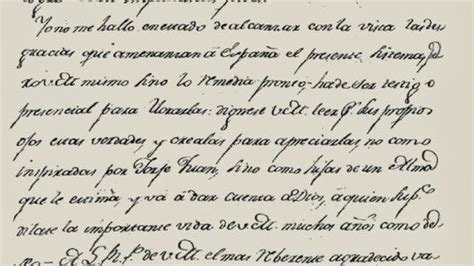 Yo no me hallo en estado de alcanzar con la vista las des
gracias que amenazan á España el presente,
mismo sino lo remedia pronto hade ser testigo
presencial para llorarlas: dignese V.M. leer pr. sus propios
ojos estas verdades y crealas para apreciarlas no como
inspiradas por Jorje Juan, sino como hijas de un Alma
que le estima, y vá á dar cuenta a Dios, á quien sup.co
dilate la importante vida de V.M. muchos años como de
A L.R.P. de V.M. el mas reberente agradecido va=